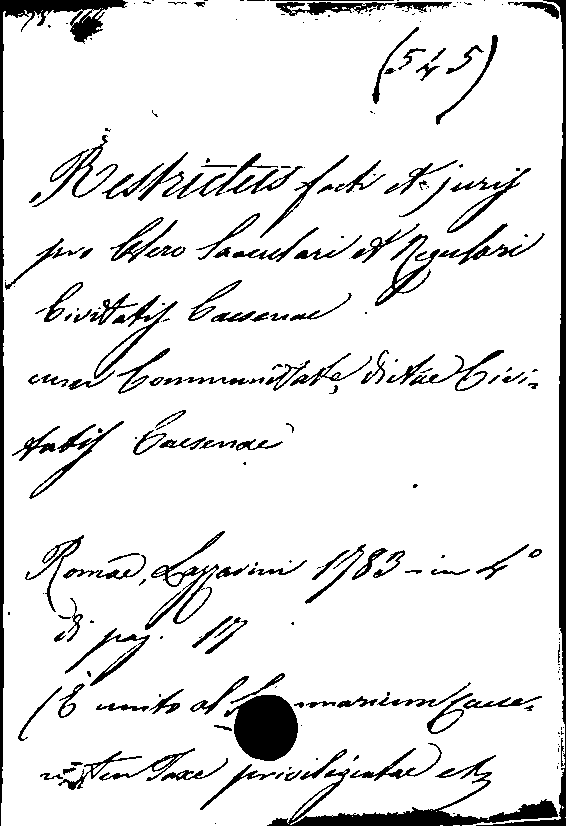 (545)
Restrictus facti et juris
pro Clero Saeculari et Regulari
Civitatis Caesenae
cum Communitate dictae Civi-
tatis Caesenae
Romae, Lazzarini 1783 - in 4°
di pag. 17
(È unito al Summarium Caese-
Taxe privilegiatae etc